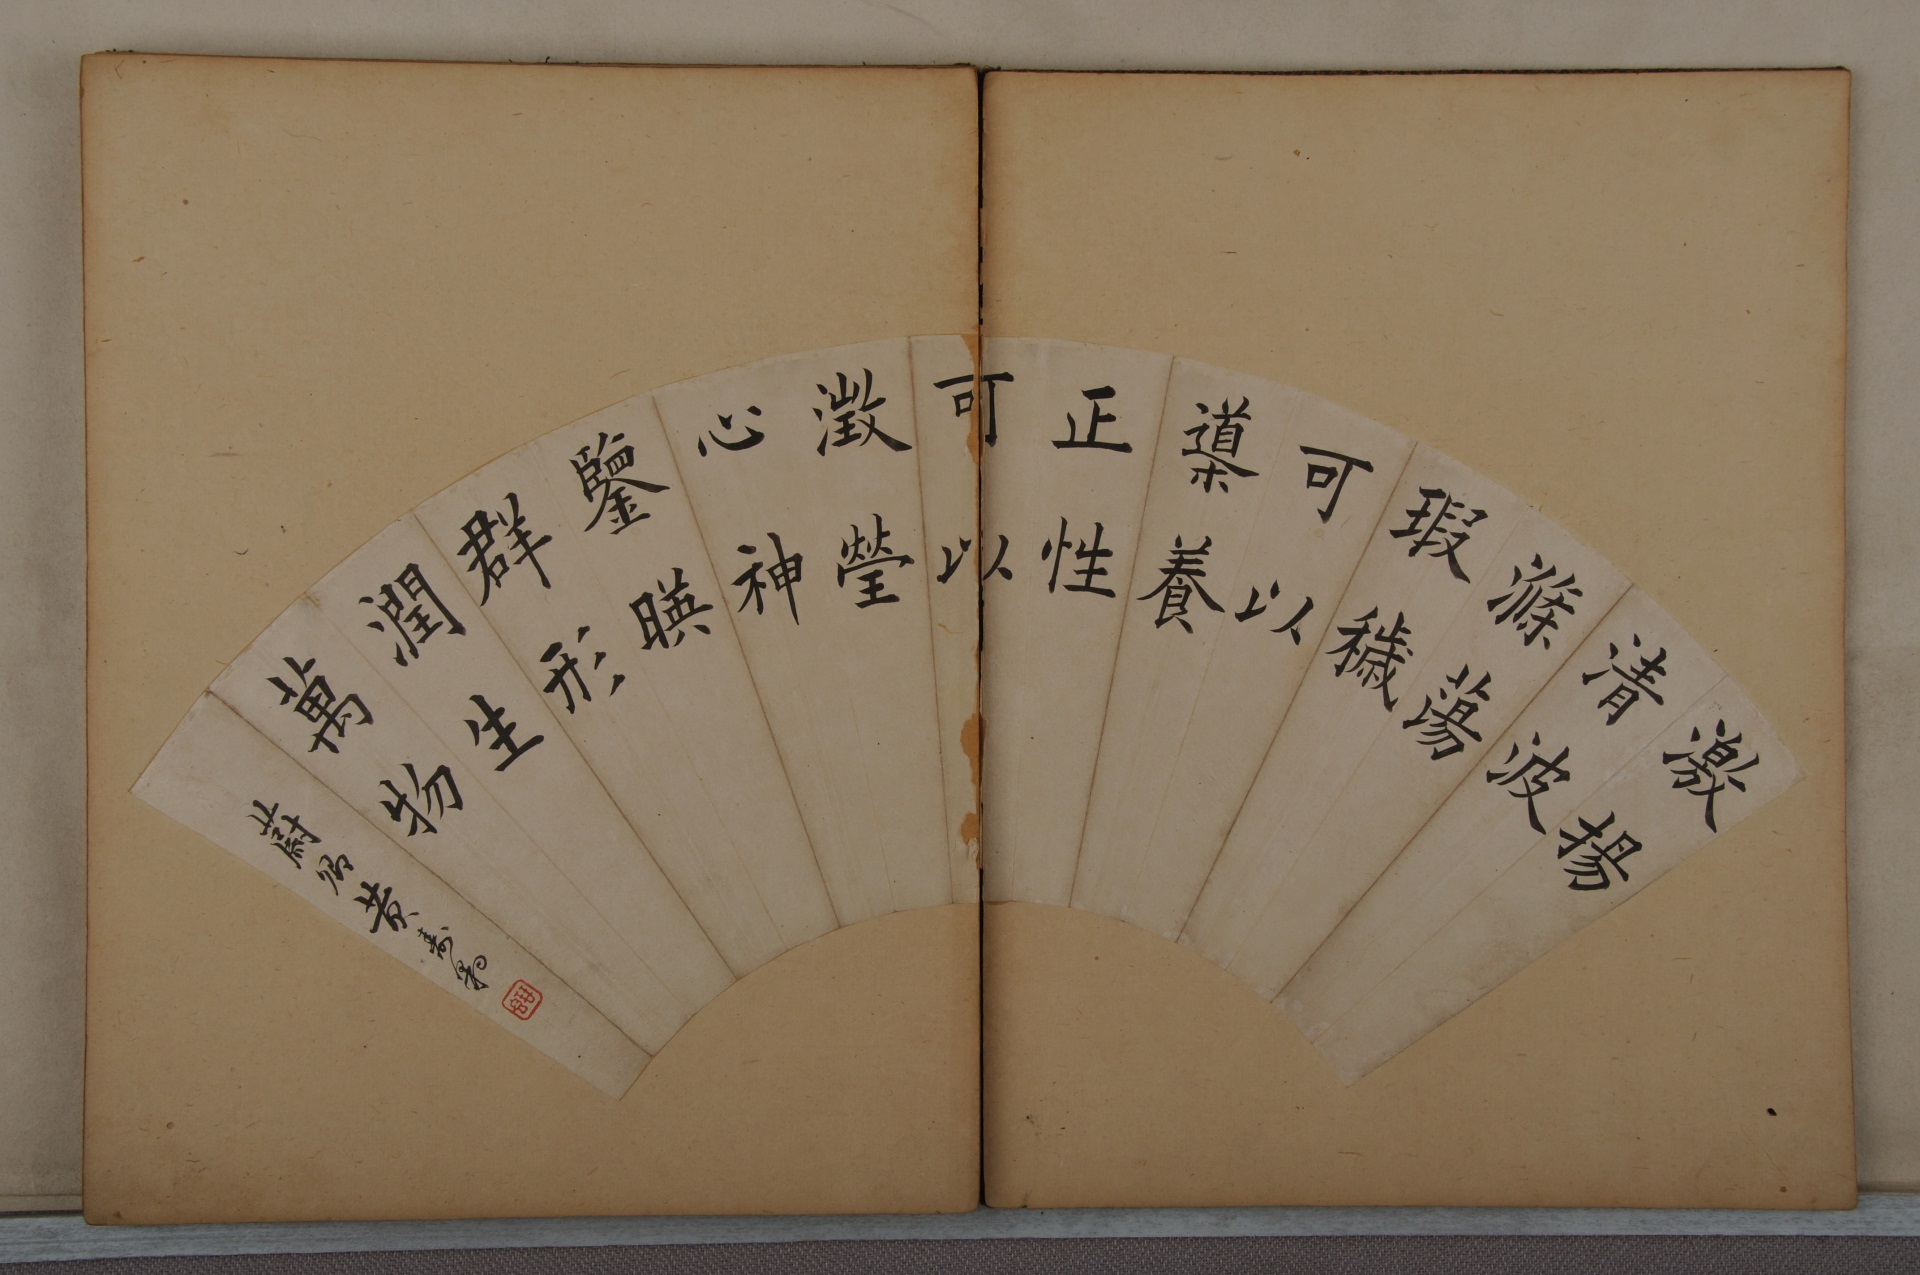 激揚
清波
滌蕩
瑕穢
可以
導養
正性
可以
澂瑩
心神
鑒暎
群形
潤生
萬物
蔚 黄壽